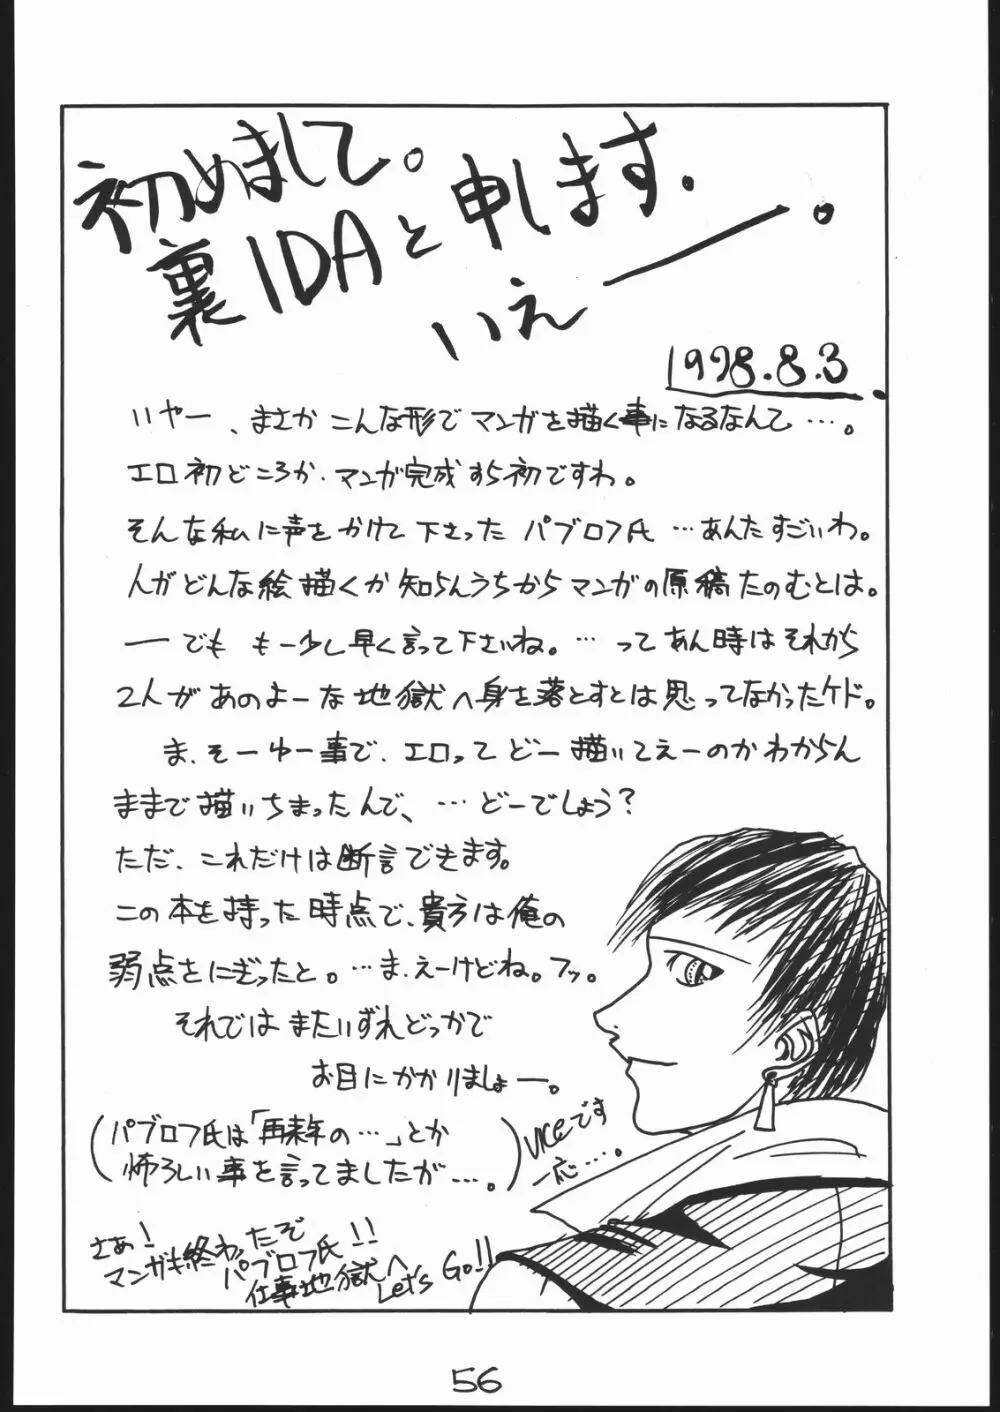 初めまして。
裏IDAと申します.
いえー。
1998.8.3.
いやー、まさかこんな形でマンガを描く事になるなんて…。
エロ初どころか、マンガ完成すら初ですわ。
そんな私に声をかけて下さったパブロフ氏…あんたすごいわ。
人がどんな絵描くか知らんうちからマンガの原稿たのむとは。
ーでももー少し早く言って下さいね。…ってあん時はそれから
2人があのよーな地獄へ身を落とすとは思ってなかったケド。
ま、そーゆー事で、エロってどー描いてえーのかわからん
ままで描いちまったんで、…どーでしょう？
ただ、これだけは断言できます。
この本を持った時点で、貴方は俺の
弱点をにぎったと。…ま、えーけどね。フッ。
それではまたいずれどっかで
お目にかかりましょー。
(パブロフ氏は「再来年の…」とか
怖ろしい事を言ってましたが…。)
VICEです
一応…。
さぁ！
マンガも終わったぞ
パブロフ氏!!
仕事地獄へ
Let's Go!!
56